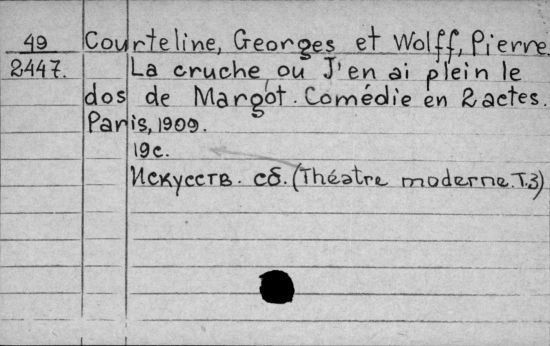 49 Courteline, Georges et Wolff, Pierre.
2447. La cruche ou J'en ai plein le
dos de Margot. Comédie en 2 actes.
Paris, 1909.
19c.
Искусств. сб. (Théatre moderne. T.3)